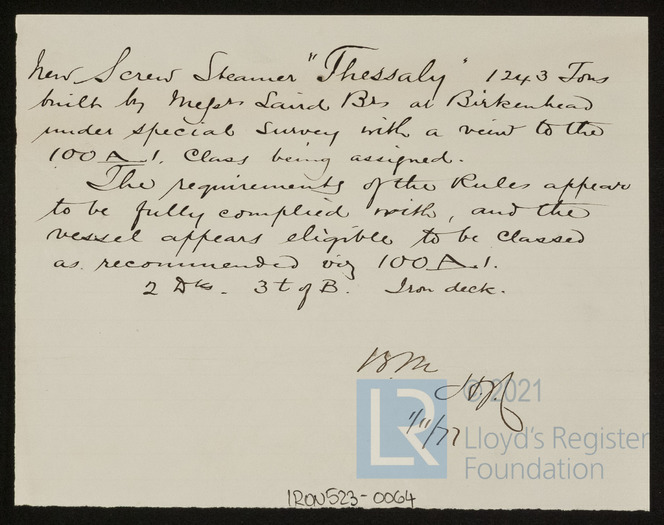 New Screw Steamer "Thessaly" 1243 Tons
built by Messrs Laird Brs at Birkenhead
under special Survey with a veiw to the
100 A 1. Class being assigned.
The requirements of the Rules appear
to be fully complied with, and the
vessel appears eligible to be classed
as recommended viz 100 A 1.
2 Dks - 3 t of B. Iron deck.
B.M
1/11/77
© 2021
LR
Lloyd's Register
Foundation
IRON523-0064